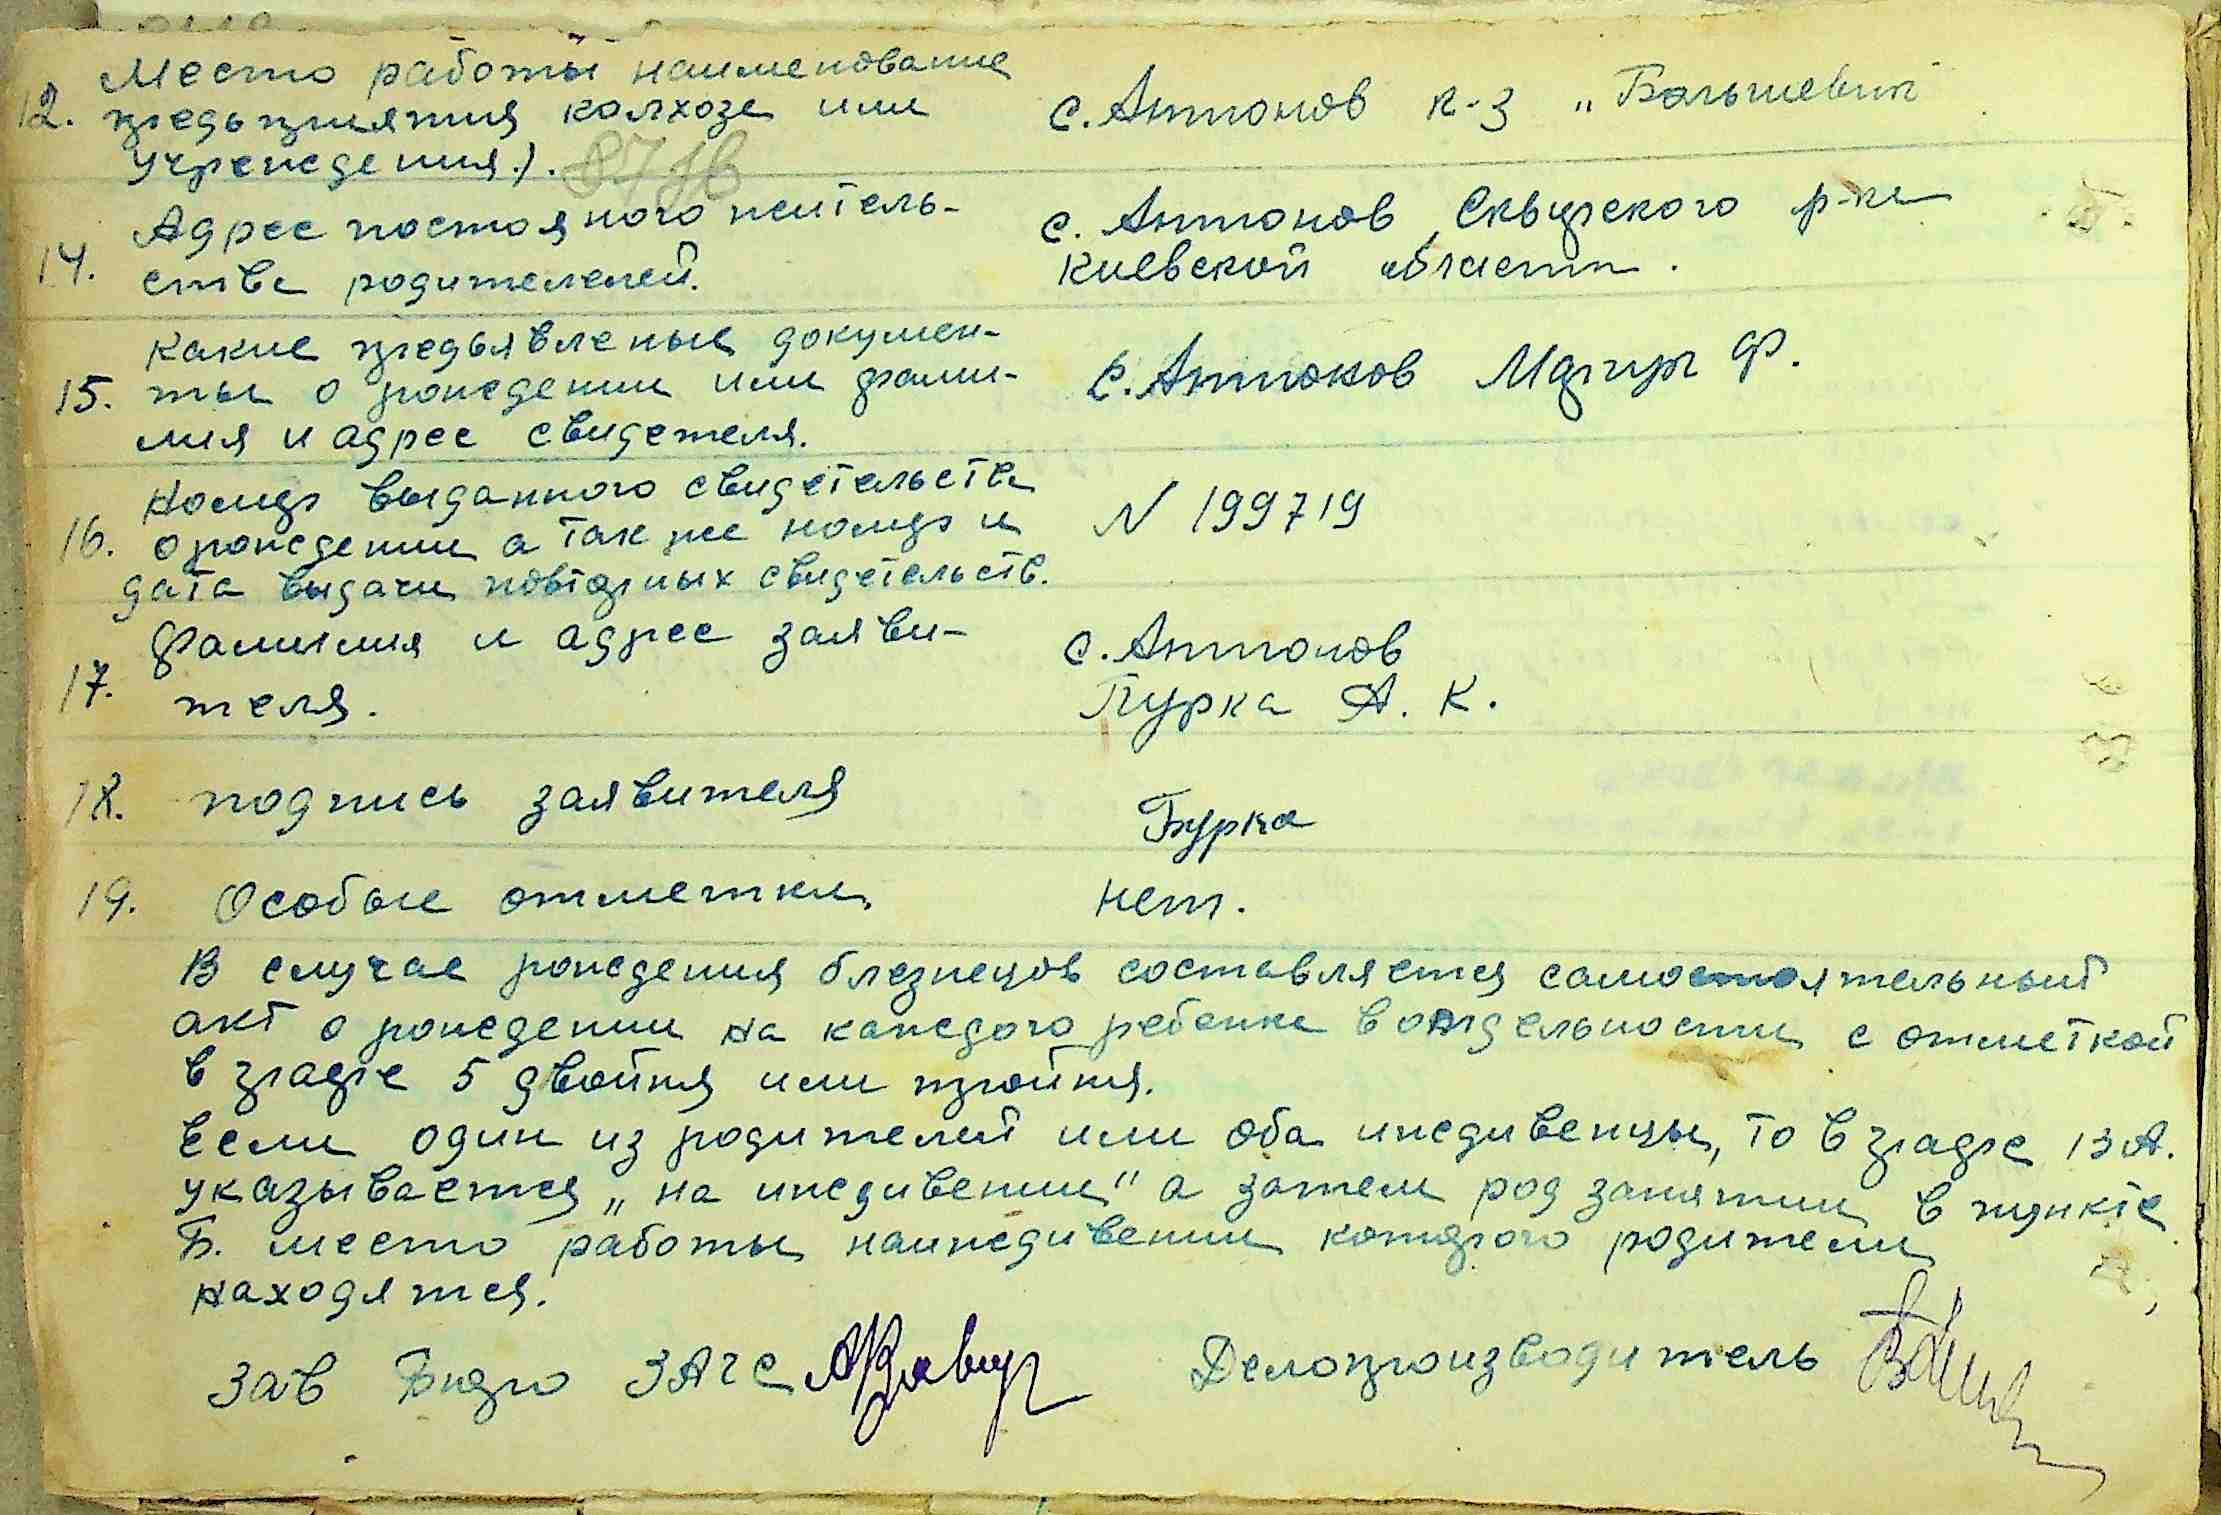 Место работы наименование
12. предьприятия колхоза или с. Антонов к-з „Большевик
учреждения).
Адрес постоянного житель- с. Антонов, Сквырского р-на
14. ства родителелей. Киевской области.
Какие предьявленые докумен-
15. ты о рождении или фами- с. Антонов Ф.
лия и адрес свидетеля.
Номер выданного свидетельства
16. о рождении а так же номер и N 199719
дата выдачи повторных свидетельств.
Фамилия и адрес заяви- с. Антонов
17. теля. Пурка А. К.
18. подпись заявителя Бурка
19. Особые отметки нет.
В случае рождения близнецов составляется самостоятельный
акт о рождении на каждого ребенка в отдельности с отметкой
в графе 5 двойня или тройня.
Если один из родителей или оба иждивенцы, то в графе 13 А.
указывается „на иждивении" а затем род занятии в пункте
Б. место работы наиждивении которого родители
находятся.
Зав Бюро ЗАГС Делопроизводитель